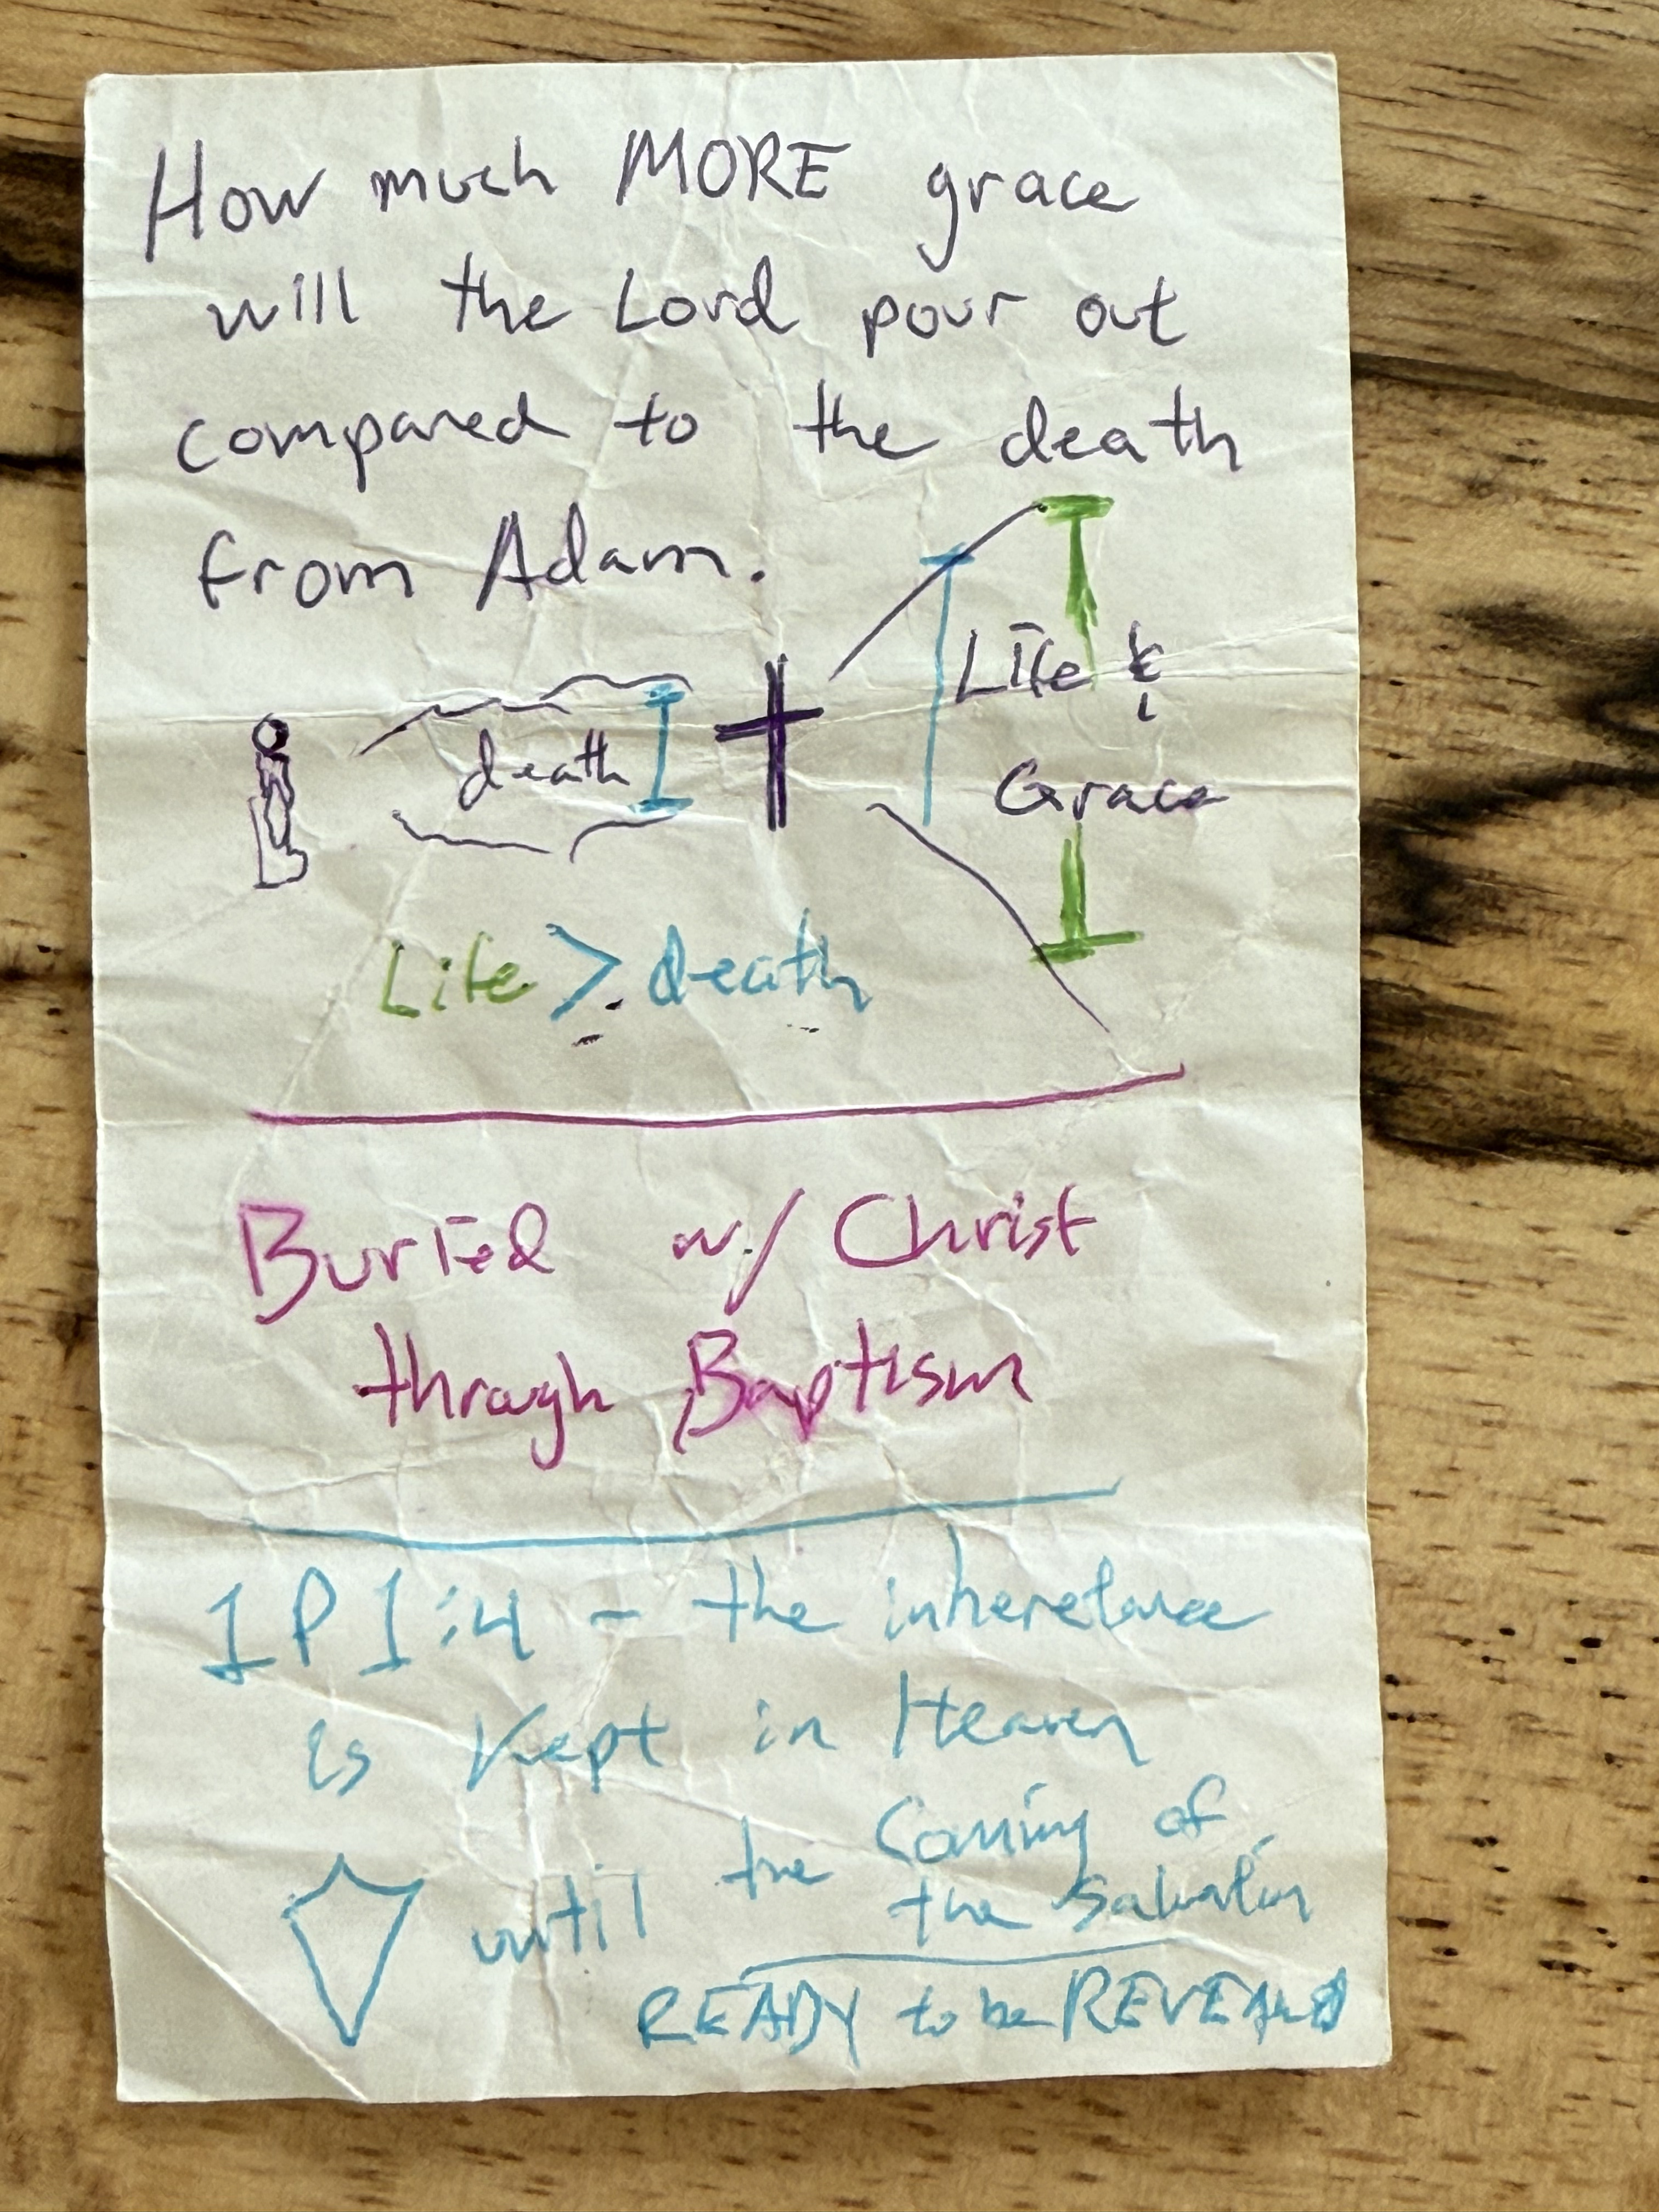 How much MORE grace
will the Lord pour out
compared to the death
from Adam.
death
Life &
Grace
Life > death
Buried w/ Christ
through Baptism
1 P 1:4 - the inheretance
is Kept in Heaven
until the Coming of
the Salvation
READY to be REVEALED